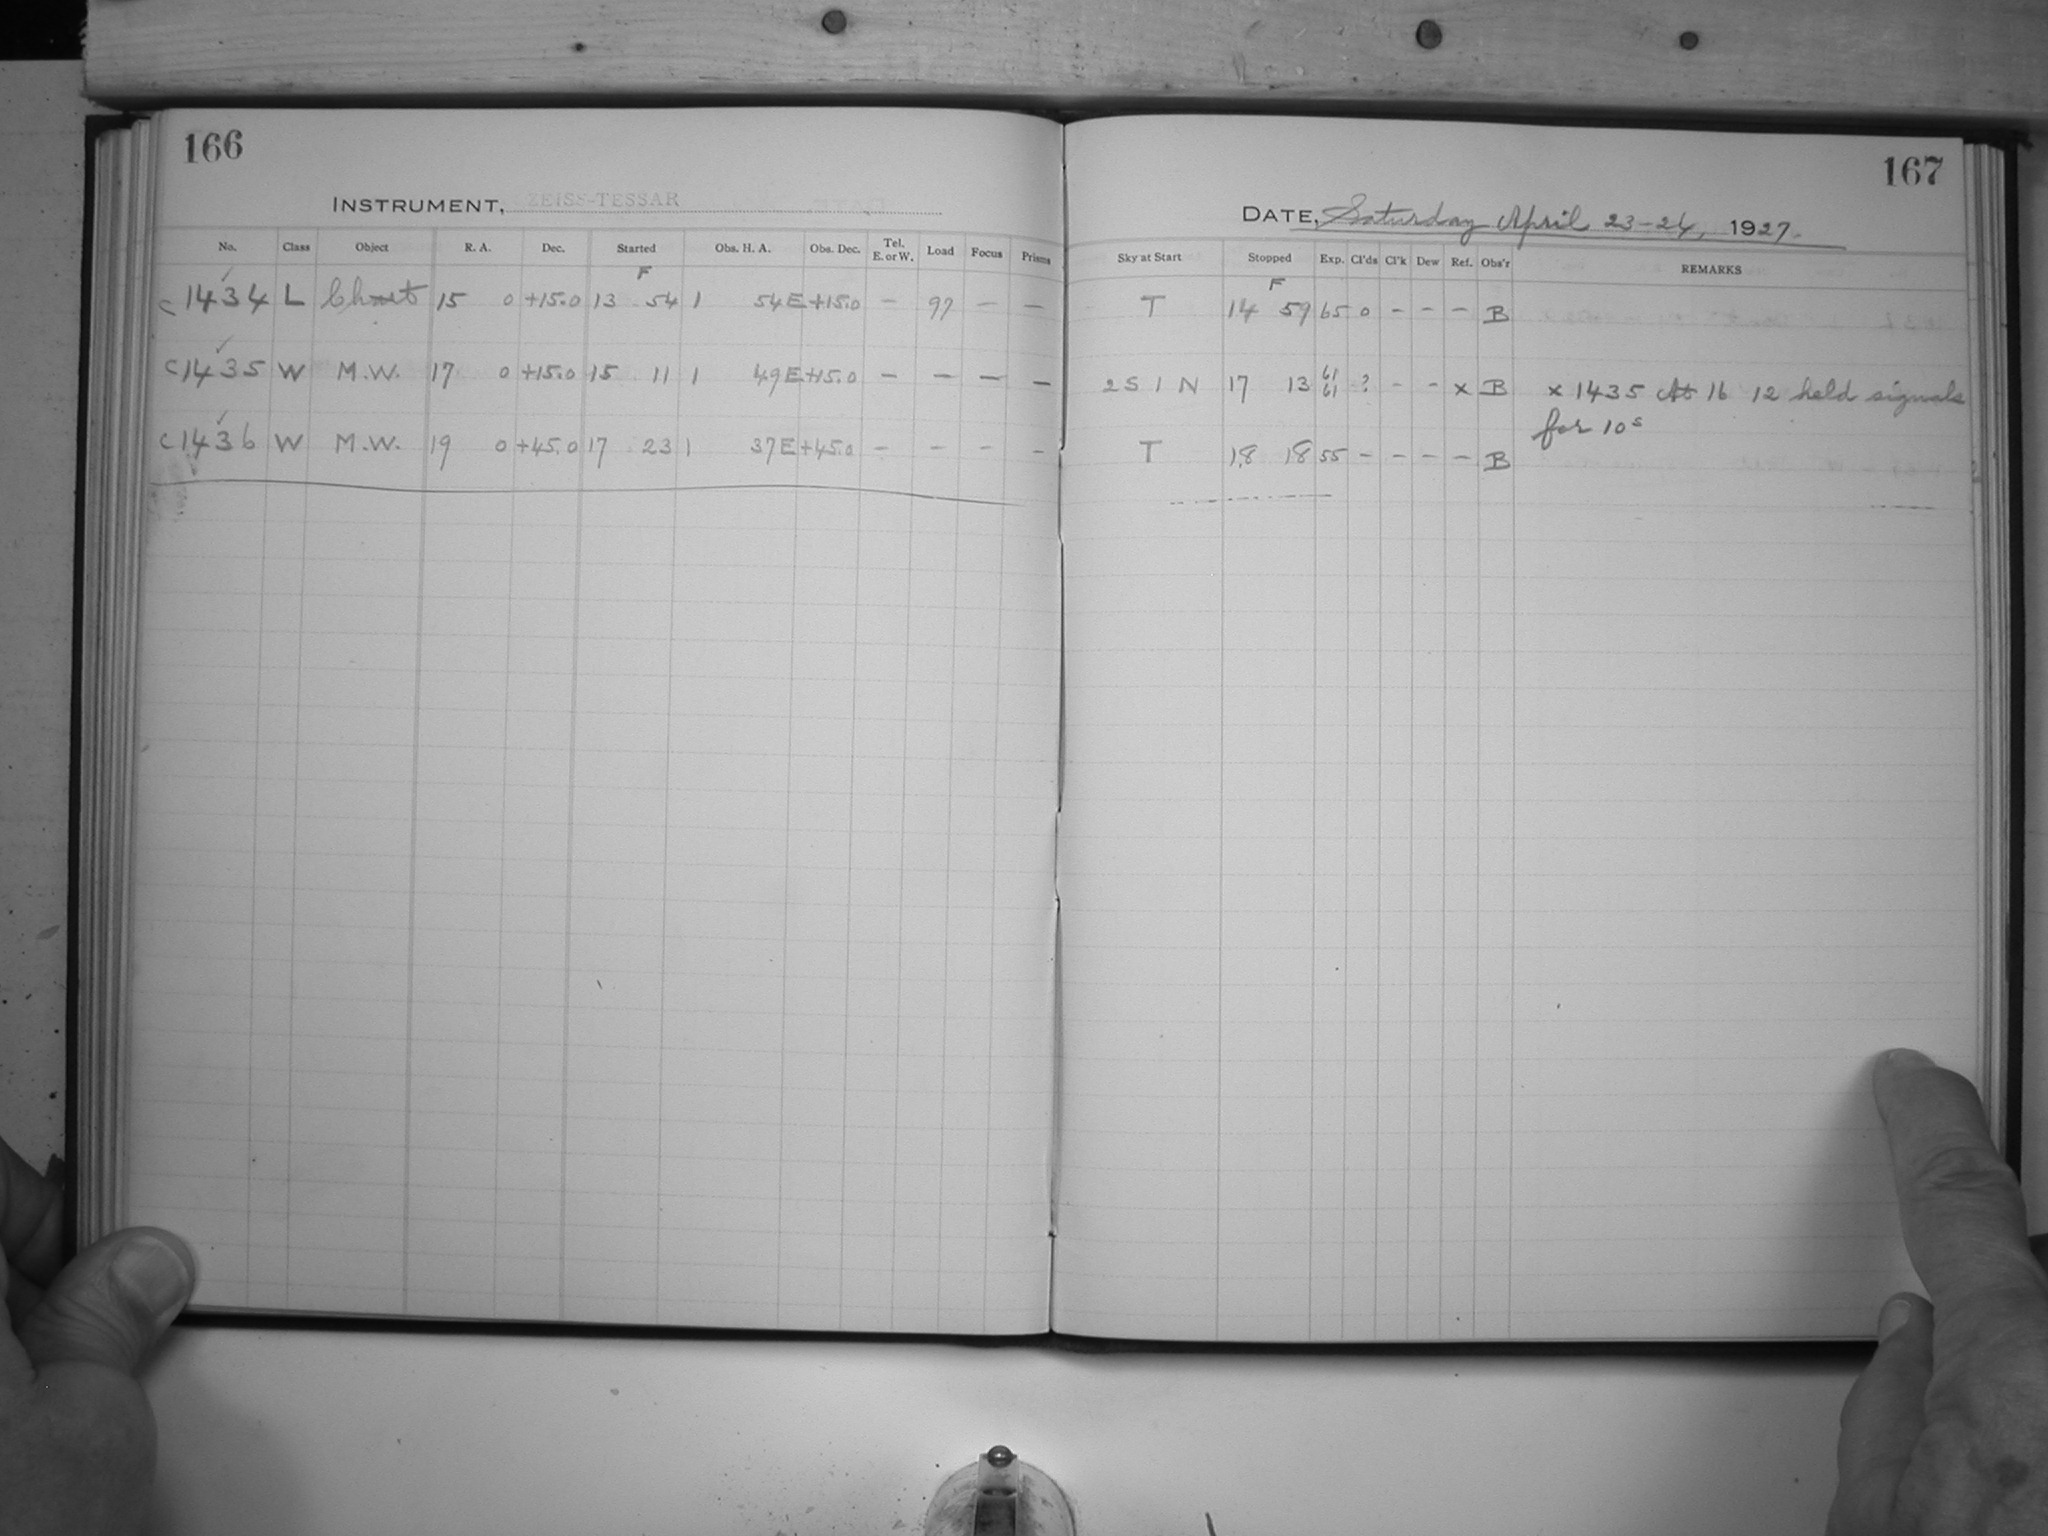 166
INSTRUMENT, ZEISS-TESSAR
No. Class Object R. A. Dec. Started Obs. H. A. Obs. Dec. Tel. E. or W. Load Focus Prisms
F
c 1434 L Chart 15 0 +15.0 13 54 1 54 E +15.0 — 97 — —
c 1435 W M.W. 17 0 +15.0 15 11 1 49 E +15.0 — — — —
c 1436 W M.W. 19 0 +45.0 17 23 1 37 E +45.0 — — — —
167
DATE, Saturday April 23-24, 1927.
Sky at Start Stopped Exp. Cl'ds Cl'k Dew Ref. Obs'r REMARKS
F
T 14 59 65 0 — — — B
2 S 1 N 17 13 61 61 ? — — x B x 1435 At 16 12 held signals
for 10s
T 18 18 55 — — — — B